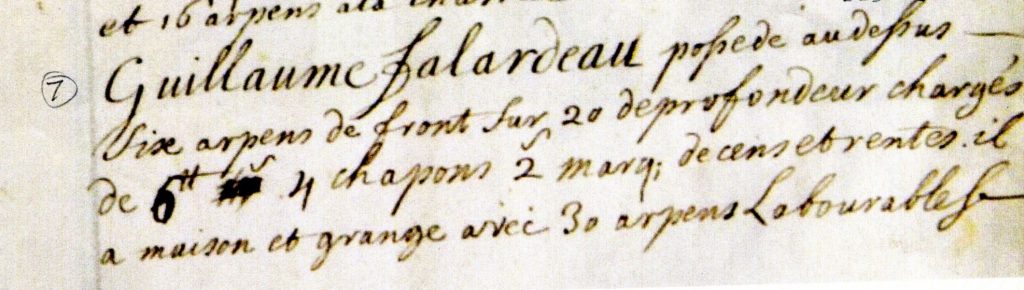 et 16 arpens a la
7 Guillaume falardeau possede au dessus
Six arpens de front sur 20 de profondeur chargés
de 6tt 4 chapons 2s marq; de cens et rentes. il
a maison et grange avec 30 arpens Labourables